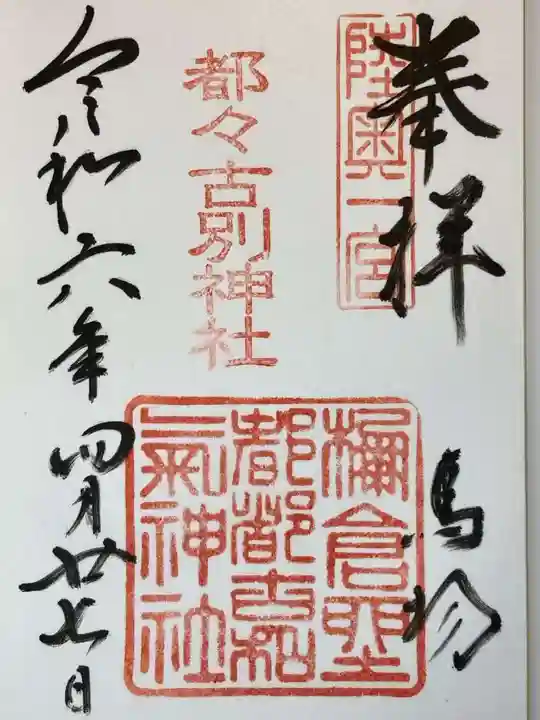 奉拝
陸奥一宮
馬場
都々古別神社
棚倉野
都都古和
氣神社
令和六年四月廿七日